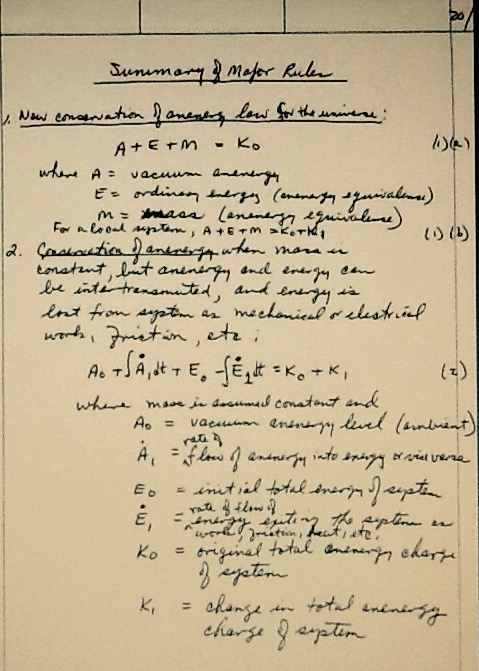 20/
Summary of Major Rules
1. New conservation of anenergy law for the universe:
A + E + M = K₀ (1)(a)
where A = vacuum anenergy
E = ordinary energy (anenergy equivalense)
M = mass (anenergy equivalense)
For a local system, A+E+M = K₀+K₁ (1)(b)
2. Conservation of anenergy when mass is
constant, but anenergy and energy can
be intertransmuted, and energy is
lost from system as mechanical or electrical
work, friction, etc;
A₀ + ∫Ȧ₁dt + E₀ - ∫Ė₁dt = K₀ + K₁ (2)
where mass is assumed constant and
A₀ = vacuum anenergy level (ambient)
Ȧ₁ = rate of flow of anenergy into energy or vice versa
E₀ = initial total energy of system
Ė₁ = rate of flow of energy exiting the system as
work, friction, heat, etc.
K₀ = original total anenergy charge
of system
K₁ = change in total anenergy
charge of system